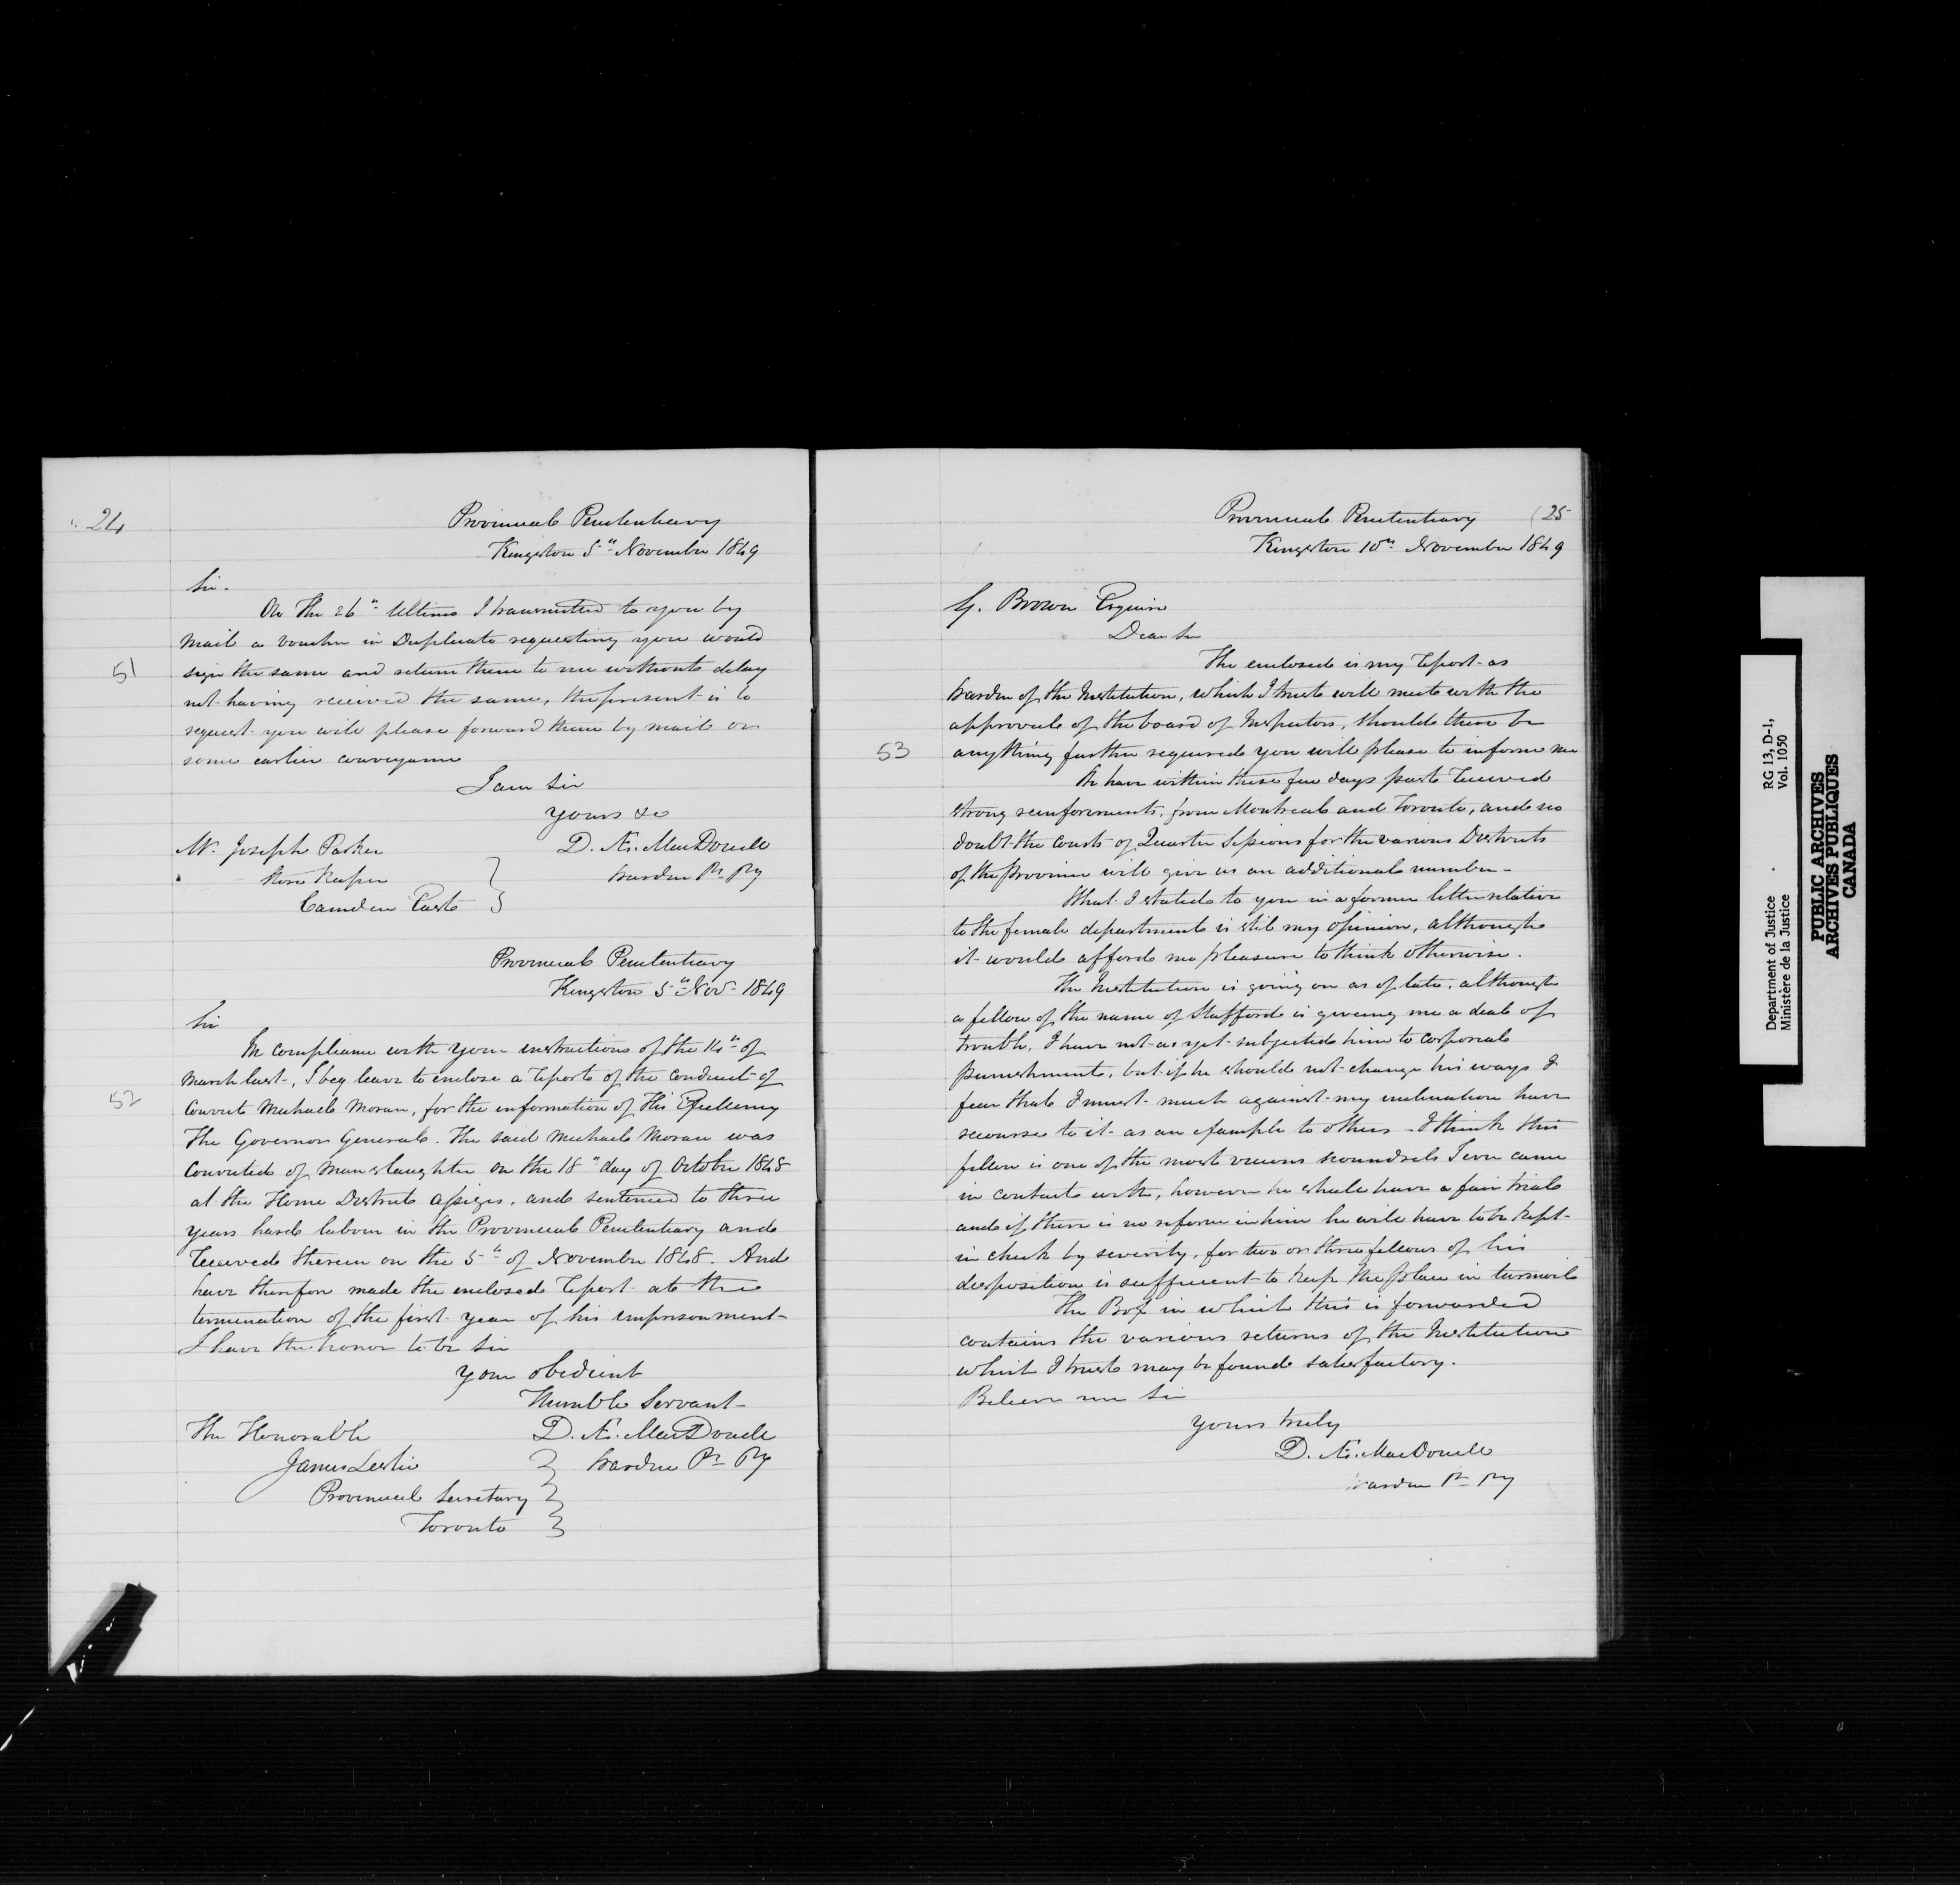 24
Provincial Penitentiary
Kingston 5th November 1849
Sir.
On The 26th Ultimo I transmitted to you by
Mail a Voucher in Duplicate requesting you would
sign the same and return them to me without delay
not having received the same, the present is to
request you will please forward them by mail or
some earlier conveyance
I am Sir
yours &c
D. Æ. MacDonell
Warden Pr. Py
Mr. Joseph Parker
Store Keeper
Camden East
51
Provincial Penitentiary
Kingston 5th Nov. 1849
Sir
In compliance with your instructions of the 14th of
March last, I beg leave to enclose a Report of the conduct of
Convict Michael Moran, for the information of His Excellency
The Governor General. The said Michael Moran was
Convicted of Manslaughter on the 18th day of October 1848
at the Home District Assizes, and sentenced to three
years hard labour in the Provincial Penitentiary and
Received therein on the 5th of November 1848. And
have therefore made the enclosed Report at the
termination of the first year of his imprisonment
I have the honor to be Sir
your obedient
Humble Servant
D. Æ. MacDonell
Warden Pr. Py
The Honorable
James Leslie
Provincial Secretary
Toronto
52
25
Provincial Penitentiary
Kingston 10th November 1849
G. Brown Esquire
Dear Sir
The enclosed is my Report as
Warden of the Institution, which I trust will meet with the
approval of the board of Inspectors, should there be
anything further required you will please to inform me
53
We have within these few days past Received
strong reinforcements, from Montreal and Toronto, and no
doubt the Courts of Quarter Sessions for the various Districts
of the Province will give us an additional number.
What I stated to you in a former letter relative
to the female department is still my opinion, although
it would afford me pleasure to think otherwise.
The Institution is going on as of late, although
a fellow of the name of Stafford is giveing me a deal of
trouble, I have not as yet subjected him to Corporal
Punishment, but if he should not change his ways I
fear that I must much against my inclination have
recourse to it as an example to others - I think this
fellow is one of the most vicious scoundrels I ever came
in contact with, however he shall have a fair trial
and if there is no reform in him he will have to be kept
in check by severity, for two or three fellows of his
desposition is sufficient to keep the place in turmoil
The Box in which this is forwarded
contains the various returns of the Institution
which I trust may be found satisfactory.
Believe me Sir
yours truly
D. Æ. MacDonell
Warden Pr. Py
Department of Justice
Ministère de la Justice
RG 13, D-1,
Vol. 1050
PUBLIC ARCHIVES
ARCHIVES PUBLIQUES
CANADA